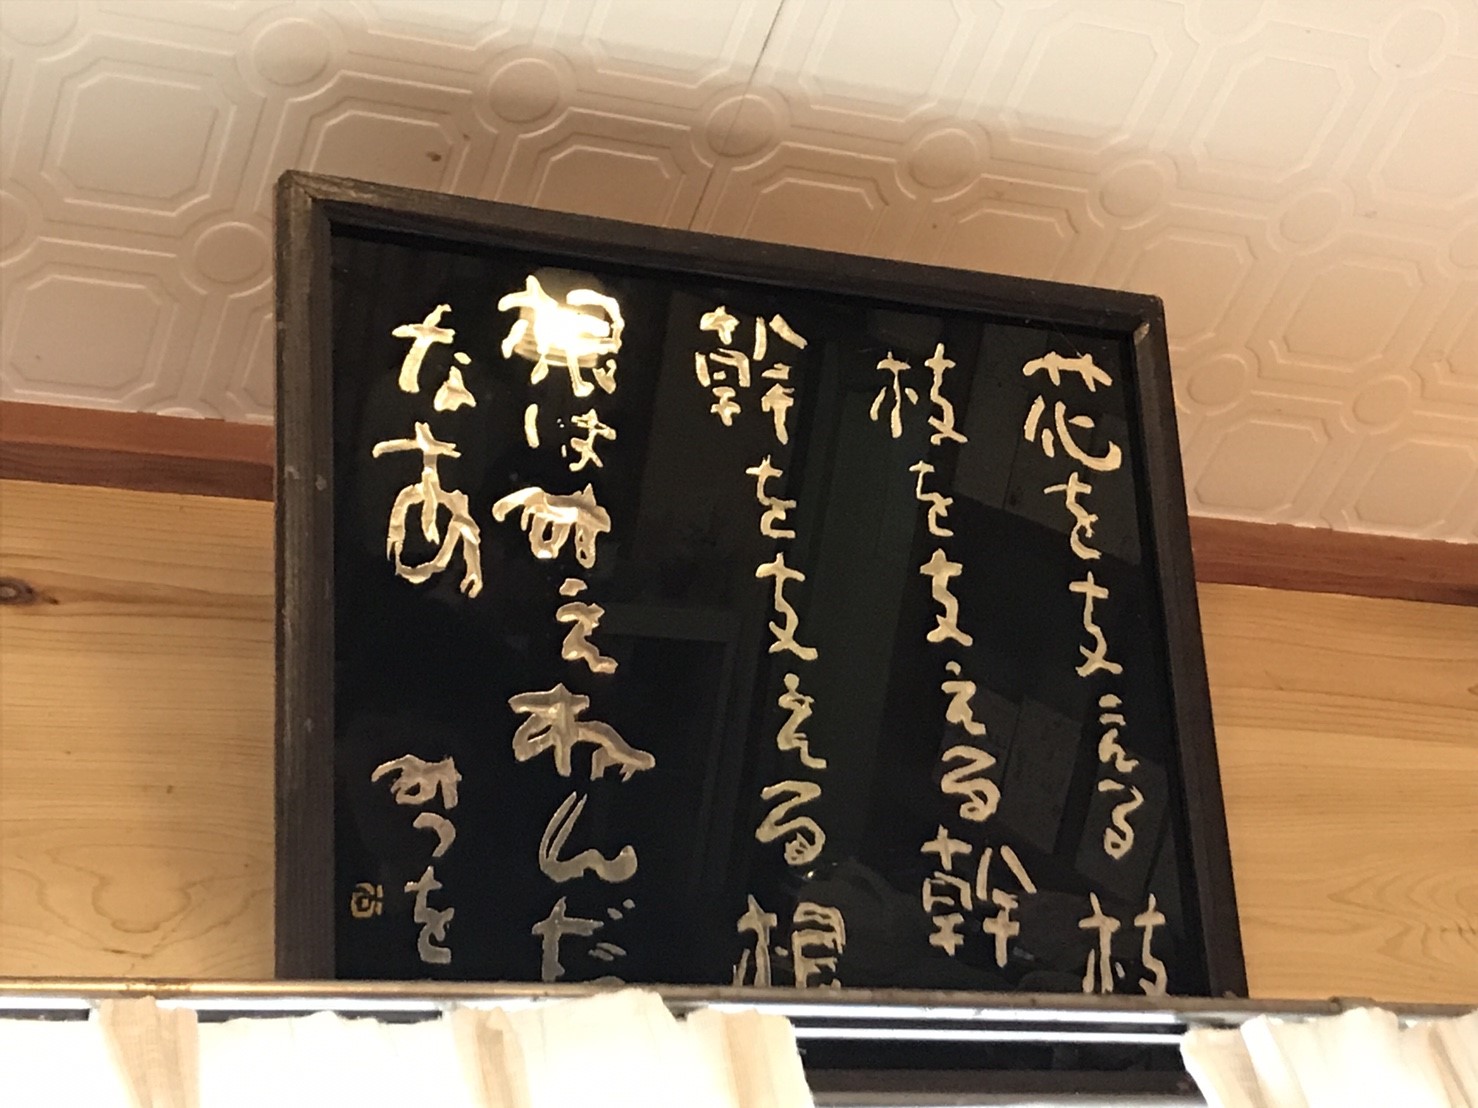 花を支える枝
枝を支える幹
幹を支える根
根はみえねえんだ
なあ
みつを